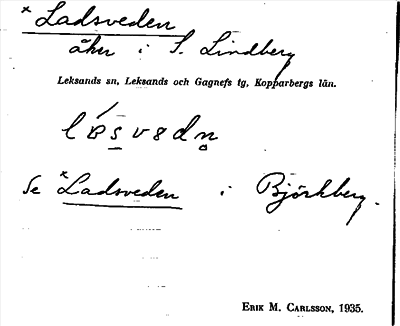 * Ladsveden
åker i S. Lindberg
Leksands sn, Leksands och Gagnefs tg, Kopparbergs län.
Se *Ladsveden i Björkberg.
ERIK M. CARLSSON, 1935.